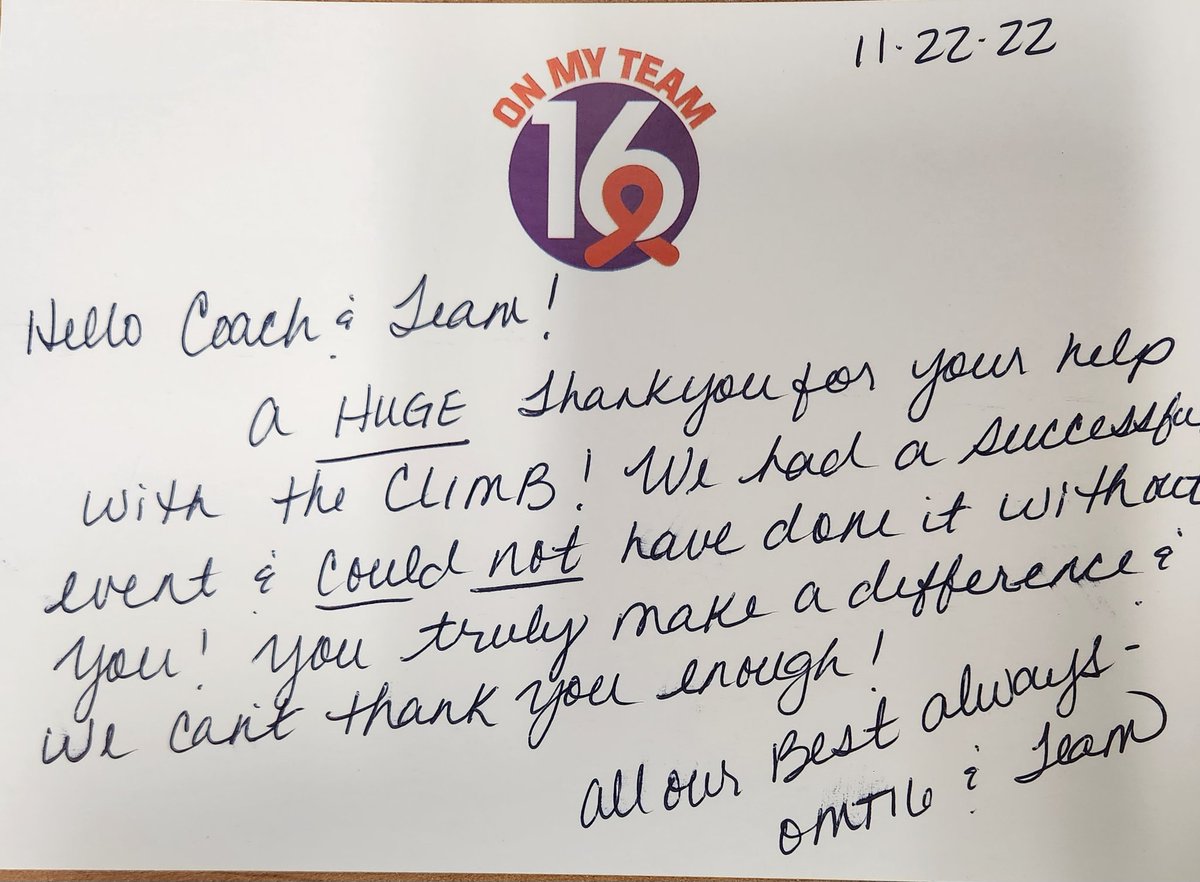 11-22-22
ON MY TEAM
16
Hello Coach & Team!
A HUGE Thankyou for your help
with the CLIMB! We had a successfu
event & could not have done it without
You! You truly make a difference &
we can't thank you enough!
All our Best always-
OMT16 & Team